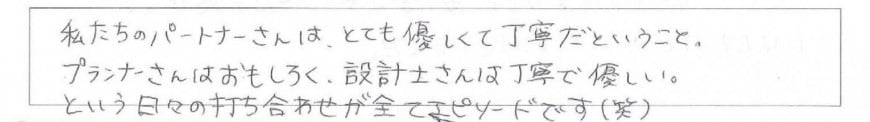 私たちのパートナーさんは、とても優しくて丁寧だということ。
プランナーさんはおもしろく、設計士さんは丁寧で優しい。
という日々の打ち合わせが全てエピソードです(笑)